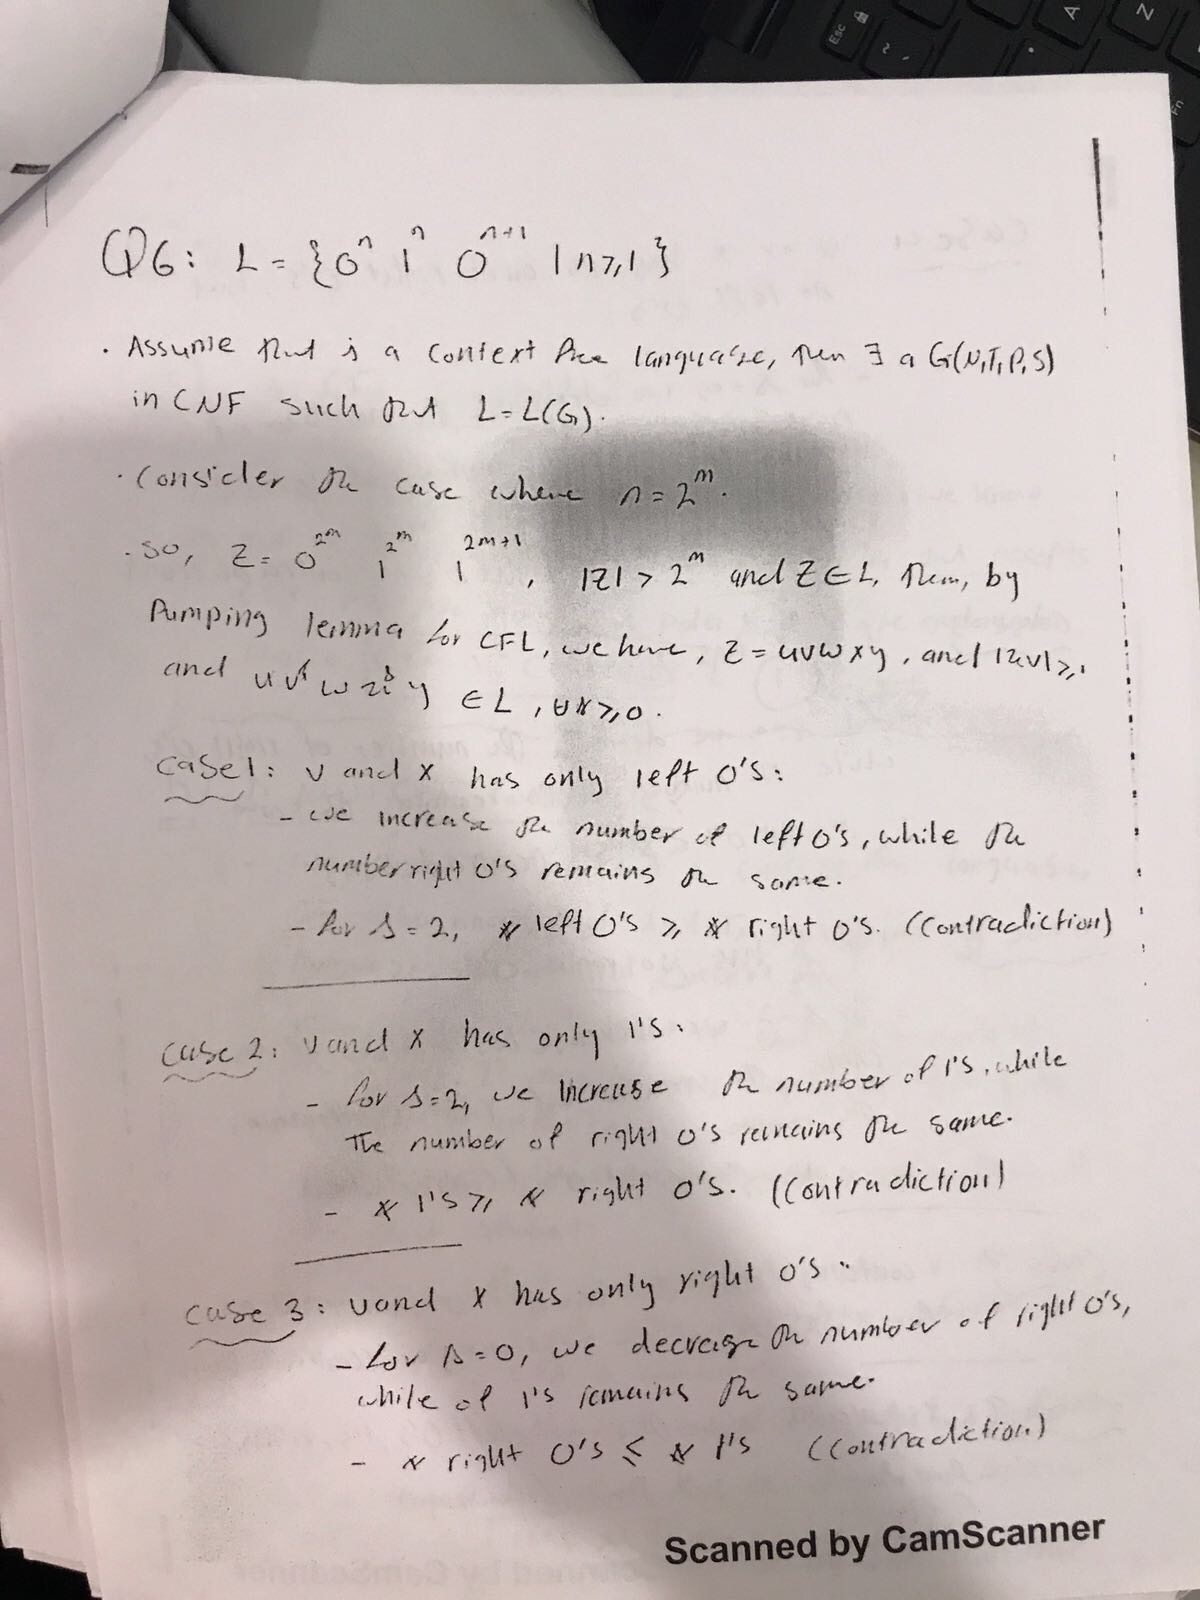 Q6: L = {0^n 1^n 0^{n+1} | n ≥ 1}
· Assume that is a context free language, then ∃ a G(N,T,P,S)
in CNF such that L = L(G).
· Consider the case where n = 2^m.
· so, Z = 0^{2^m} 1^{2^m} 1^{2m+1}, |Z| > 2^m and Z ∈ L, then, by
Pumping lemma for CFL, we have, Z = uvwxy, and ≥ 1
and ∈ L, ≥ 0.
case 1: v and x has only left 0's:
- we increase the number of left 0's, while the
number right 0's remains the same.
- for s = 2, # left 0's ≥ # right 0's. (Contradiction)
case 2: v and x has only 1's:
- for s = 2, we increase the number of 1's, while
The number of right 0's remains the same.
- # 1's ≥ # right 0's. (Contradiction)
case 3: v and x has only right 0's:
- for s = 0, we decrease the number of right 0's,
while of 1's remains the same.
- # right 0's ≤ # 1's (Contradiction)
Scanned by CamScanner
Esc
A
Z
Fn